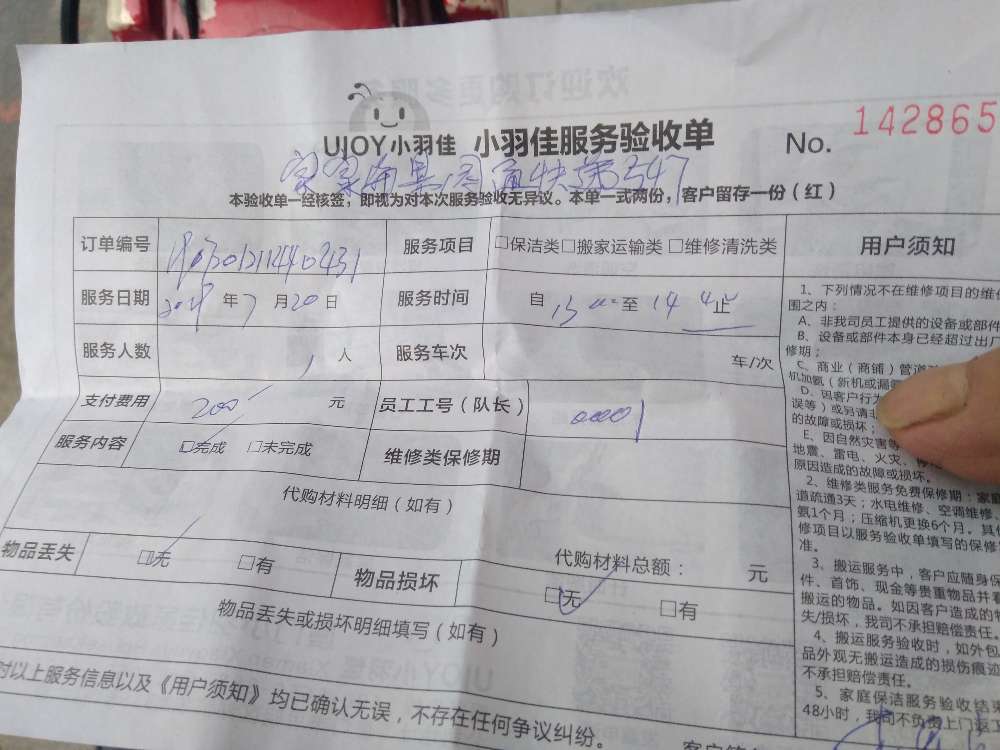 UJOY小羽佳 小羽佳服务验收单 No. 142865
本验收单一经核签，即视为对本次服务验收无异议。本单一式两份，客户留存一份（红）
订单编号
服务项目 □保洁类□搬家运输类□维修清洗类
服务日期 年7月20日
服务时间 自 至 止
服务人数 1人
服务车次 车/次
支付费用 200 元
员工工号（队长） 00001
服务内容 □完成 □未完成
维修类保修期
代购材料明细（如有）
代购材料总额： 元
物品丢失 □无 □有
物品损坏 □无 □有
物品丢失或损坏明细填写（如有）
对以上服务信息以及《用户须知》均已确认无误，不存在任何争议纠纷。
用户须知
1、下列情况不在维修项目的维
围之内：
A、非我司员工提供的设备或部件
B、设备或部件本身已经超过出厂
修期；
C、商业（商铺）管道
机加氨（新机或漏
D、因客户行为
误等）或另请
的故障或损坏；
E、因自然灾害等
地震、雷电、火灾、
原因造成的故障或损坏。
2、维修类服务免费保修期：家庭
道疏通3天；水电维修、空调维修、
氨1个月；压缩机更换6个月。其
修项目以服务验收单填写的保修
准。
3、搬运服务中，客户应随身保
件、首饰、现金等贵重物品并看
搬运的物品。如因客户造成的
失/损坏，我司不承担赔偿责任。
4、搬运服务验收时，如外包
品外观无搬运造成的损伤痕迹
不承担赔偿责任。
5、家庭保洁服务验收结束
48小时，我司不负责上门返工